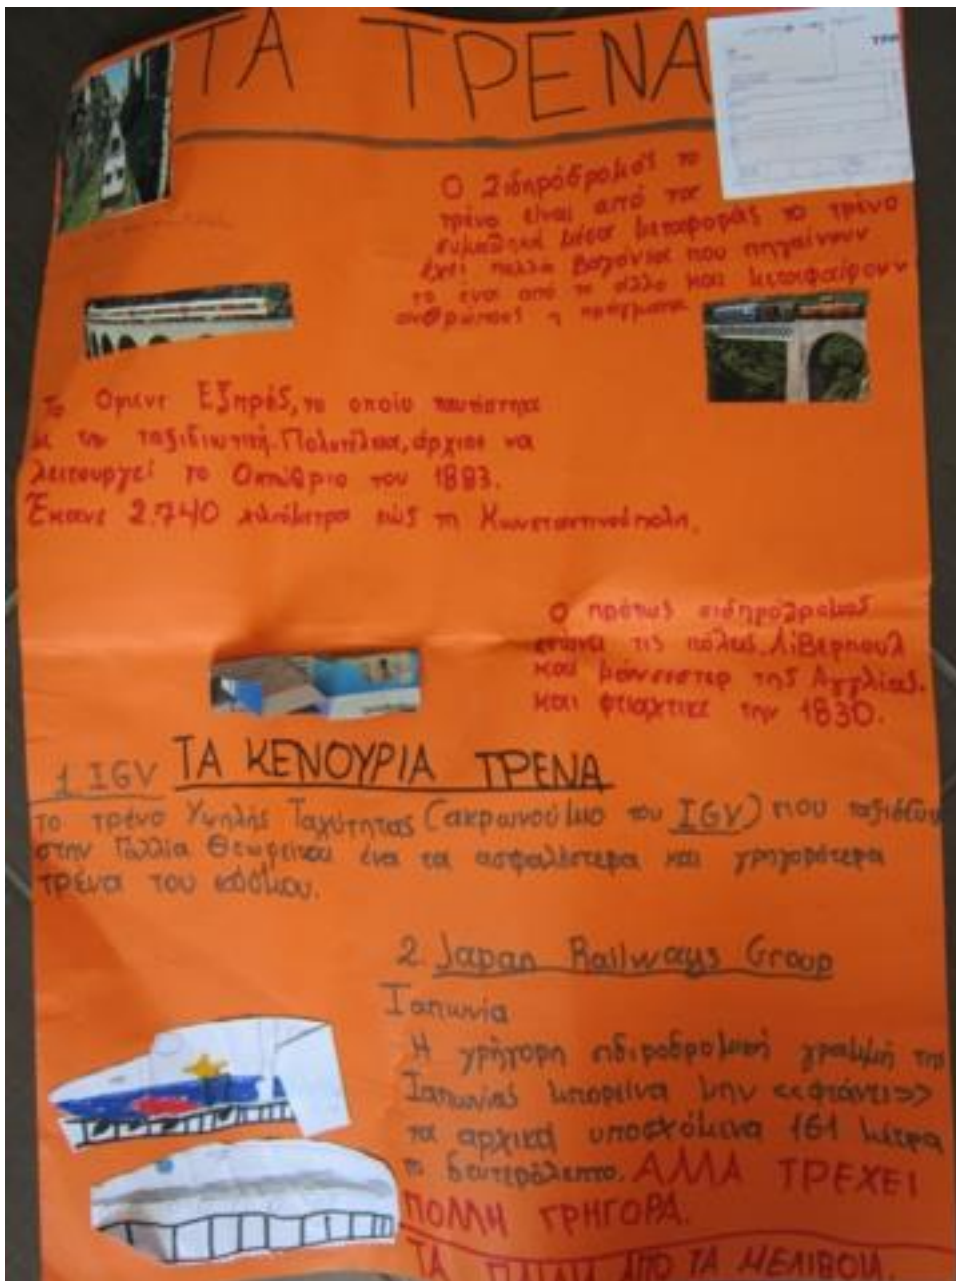 ΤΑ ΤΡΕΝΑ
Ο Σιδηρόδρομός το
τρένο είναι από τα
μέσα μεταφοράς το τρένο
έχει πολλά βαγόνια που πηγαίνουν
το ένα από το άλλο και μεταφαίρουν
ανθρώπους η πράγματα
Το Οριεντ Εξπρές, το οποίο ταυτίστηκε
με την ταξιδιωτική Πολυτέλεια, άρχισε να
λειτουργεί το Οκτώβριο του 1883.
Έκανε 2.740 χιλιόμετρα εώς τη Κωνσταντινούπολη.
Ο πρώτος σιδηρόδρομος
ενώνει τις πόλεις Λίβερπουλ
και μάνσεστερ της Αγγλίας.
και φτιαχτικε την 1830.
ΤΑ ΚΕΝΟΥΡΙΑ ΤΡΕΝΑ
1 IGV
το τρένο Υψηλής Ταχύτητας (ακρωνούμιο του IGV) που ταξιδεύει
στην Γαλλία Θεωρείται ένα τα ασφαλέστερα και γρηγορότερα
τρένα του κόσμου.
2 Japan Railways Group
Ιαπωνία
Η γρήγορη σιδιροδρομική γραμμή της
Ιαπωνίας μπορεί να μην <<φτάνει>>
τα αρχικά υποσχόμενα 161 μέτρα
το δευτερόλεπτο. ΑΛΛΑ ΤΡΕΧΕΙ
ΠΟΛΛΗ ΓΡΗΓΟΡΑ.
ΤΑ ΠΑΙΔΙΑ ΑΠΟ ΤΑ ΜΕΛΙΒΟΙΑ